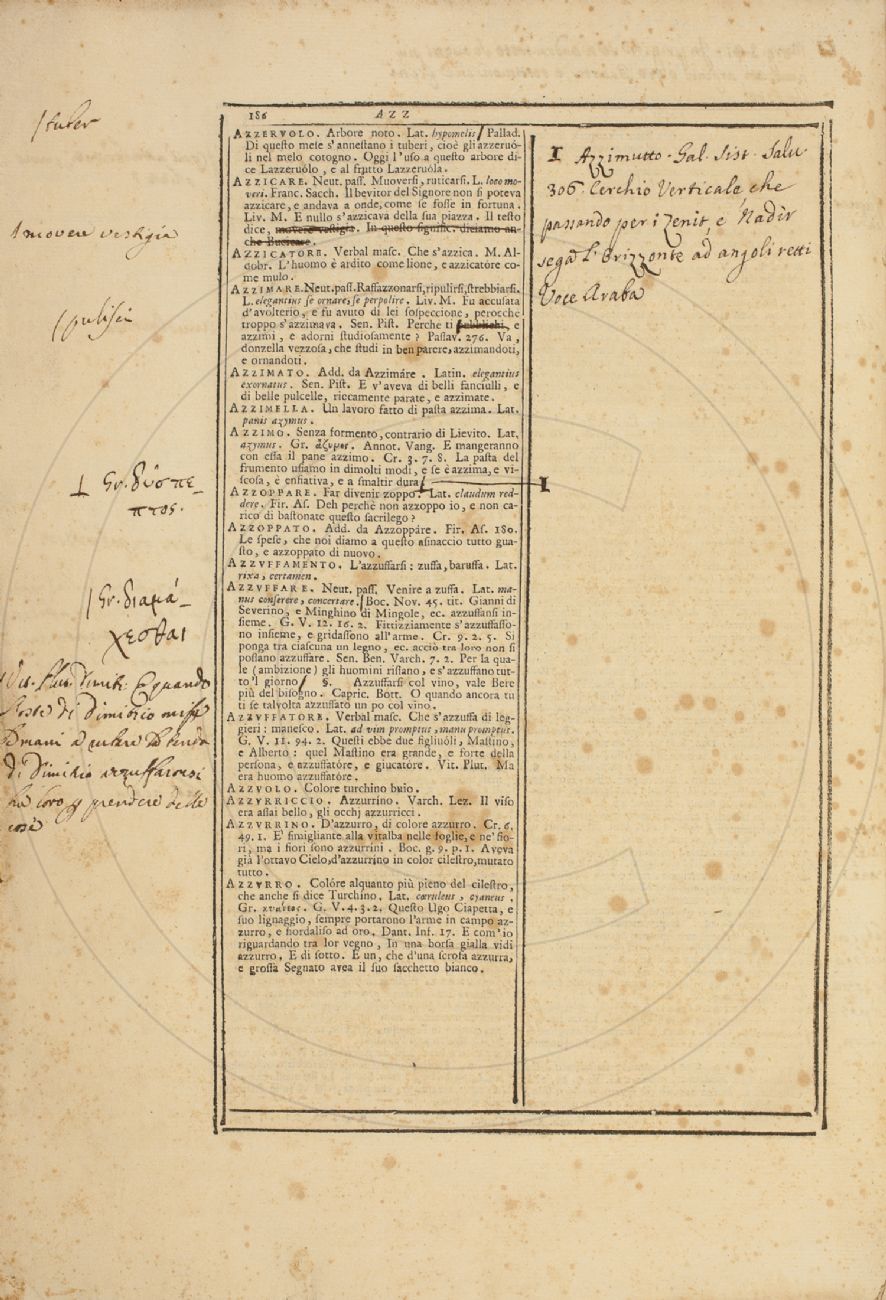 186 AZZ
AZZERVOLO. Arbore noto. Lat. hypomelis Pallad.
Di questo mele s'annestano i tuberi, cioè gli azzeruó-
li nel melo cotogno. Oggi l'uso a questo arbore di-
ce Lazzeruólo, e al frutto Lazzeruóla.
AZZICARE. Neut. pass. Muoversi, ruticarsi. L. loco mo-
veri. Franc. Sacch. Il bevitor del Signore non si poteva
azzicare, e andava a onde, come se fosse in fortuna.
Liv. M. E nullo s'azzicava della sua piazza. Il testo
dice, movere vestigia. In questo signific. diciamo an-
che Bucicare.
AZZICATORE. Verbal masc. Che s'azzica. M. Al-
dobr. L'huomo è ardito come lione, e azzicatóre co-
me mulo.
AZZIMARE. Neut. pass. Raffazzonarsi, ripulirsi, strebbiarsi.
L. elegantius se ornare, se perpolire. Liv. M. Fu accusata
d'avolterio, e fu avuto di lei sospeccione, perocchè
troppo s'azzimava. Sen. Pist. Perche ti, e
azzimi, e adorni studiosamente? Passav. 276. Va,
donzella vezzosa, che studi in ben parere, azzimandoti,
e ornandoti.
AZZIMATO. Add. da Azzimáre. Latin. elegantius
exornatus. Sen. Pist. E v'aveva di belli fanciulli, e
di belle pulcelle, riccamente parate, e azzimate.
AZZIMELLA. Un lavoro fatto di pasta azzima. Lat.
panis azymus.
AZZIMO. Senza formento, contrario di Lievito. Lat.
azymus. Gr. ἄζυμος. Annot. Vang. E mangeranno
con essa il pane azzimo. Cr. 3. 7. 8. La pasta del
frumento usiamo in dimolti modi, e se è azzima, e vi-
scosa, è enfiativa, e a smaltir dura
AZZOPPARE. Far divenir zoppo. Lat. claudum red-
dere. Fir. As. Deh perchè non azzoppo io, e non ca-
rico di bastonate questo sacrilego?
AZZOPPATO. Add. da Azzoppáre. Fir. As. 180.
Le spese, che noi diamo a questo asinaccio tutto gua-
sto, e azzoppato di nuovo.
AZZVFFAMENTO. L'azzuffarsi: zuffa, baruffa. Lat.
rixa, certamen.
AZZVFFARE. Neut. pass. Venire a zuffa. Lat. ma-
nus conserere, concertare. Boc. Nov. 45. tit. Gianni di
Severino, e Minghino di Mingole, ec. azzuffansi in-
sieme. G. V. 12. 16. 2. Fittizziamente s'azzuffasso-
no insieme, e gridassono all'arme. Cr. 9. 2. 5. Si
ponga tra ciascuna un legno, ec. acciò tra loro non si
possano azzuffare. Sen. Ben. Varch. 7. 2. Per la qua-
le (ambizione) gli huomini ristano, e s'azzuffano tut-
to 'l giorno §. Azzuffarsi col vino, vale Bere
più del bisogno. Capric. Bott. O quando ancora tu
ti se talvolta azzuffato un po col vino.
AZZVFFATORE. Verbal masc. Che s'azzuffa di leg-
gieri: manesco. Lat. ad vim promptus, manu promptus.
G. V. 11. 94. 2. Questi ebbe due figliuóli, Mastino,
e Alberto: quel Mastino era grande, e forte della
persona, e azzuffatóre, e giucatóre. Vit. Plut. Ma
era huomo azzuffatóre.
AZZVOLO. Colore turchino buio.
AZZVRRICCIO. Azzurrino. Varch. Lez. Il viso
era assai bello, gli occhj azzurricci.
AZZVRRINO. D'azzurro, di colore azzurro. Cr. 6.
49. 1. E' simigliante alla vitalba nelle foglie, e ne' fio-
ri, ma i fiori sono azzurrini. Boc. g. 9. p. 1. Aveva
già l'ottavo Cielo, d'azzurrino in color cilestro, mutato
tutto.
AZZVRRO. Colóre alquanto più pieno del cilestro,
che anche si dice Turchino. Lat. cœruleus, cyaneus.
Gr. κυάνεος. G. V. 4. 3. 2. Questo Ugo Ciapetta, e
suo lignaggio, sempre portarono l'arme in campo az-
zurro, e fiordaliso ad oro. Dant. Inf. 17. E com'io
riguardando tra lor vegno, In una borsa gialla vidi
azzurro. E di sotto. E un, che d'una scrofa azzurra,
e grossa Segnato avea il suo sacchetto bianco.
I Azzimutto. Gal. Sist. Salu
306. Cerchio Verticale che
passando per i Zenit, e Nadir
sega l'Orizzonte ad angoli retti
Voce Araba
I
tuber
movere vestigia
pulisci
Gr. δύσπε-
πτος.
Gr. διαμά-
χεσθαι
Vit. Plut. Dimitr. E quando
l'oste di Dimitrio
di Dimitrio azzuffaronsi
loro prendere delle
cose